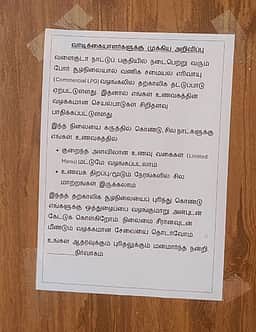 வாடிக்கையாளர்களுக்கு முக்கிய அறிவிப்பு
வளைகுடா நாட்டுப் பகுதியில் நடைபெற்று வரும்
போர் சூழ்நிலையால் வணிக சமையல் எரிவாயு
(Commercial LPG) வழங்கலில் தற்காலிக தட்டுப்பாடு
ஏற்பட்டுள்ளது. இதனால் எங்கள் உணவகத்தின்
வழக்கமான செயல்பாடுகள் சிறிதளவு
பாதிக்கப்பட்டுள்ளது.
இந்த நிலையை கருத்தில் கொண்டு, சில நாட்களுக்கு
எங்கள் உணவகத்தில்
• குறைந்த அளவிலான உணவு வகைகள் (Limited
Menu) மட்டுமே வழங்கப்படலாம்.
• உணவக திறப்பு/மூடும் நேரங்களில் சில
மாற்றங்கள் இருக்கலாம்.
இந்தத் தற்காலிக சூழ்நிலையைப் புரிந்து கொண்டு
எங்களுக்கு ஒத்துழைப்பை வழங்குமாறு அன்புடன்
கேட்டுக் கொள்கிறோம். நிலைமை சீரானவுடன்
மீண்டும் வழக்கமான சேவையை தொடர்வோம்.
உங்கள் ஆதரவுக்கும் புரிதலுக்கும் மனமார்ந்த நன்றி.
நிர்வாகம்